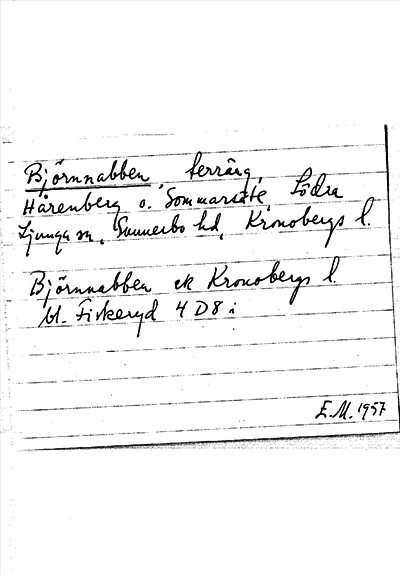 Björnnabben, terräng,
Hårenberg o. Sommarsäte, Södra
Ljunga sn, Sunnerbo hd, Kronobergs l.
Björnnabben ek Kronobergs l.
bl. Fickeryd 4 D8 i
E.M. 1957